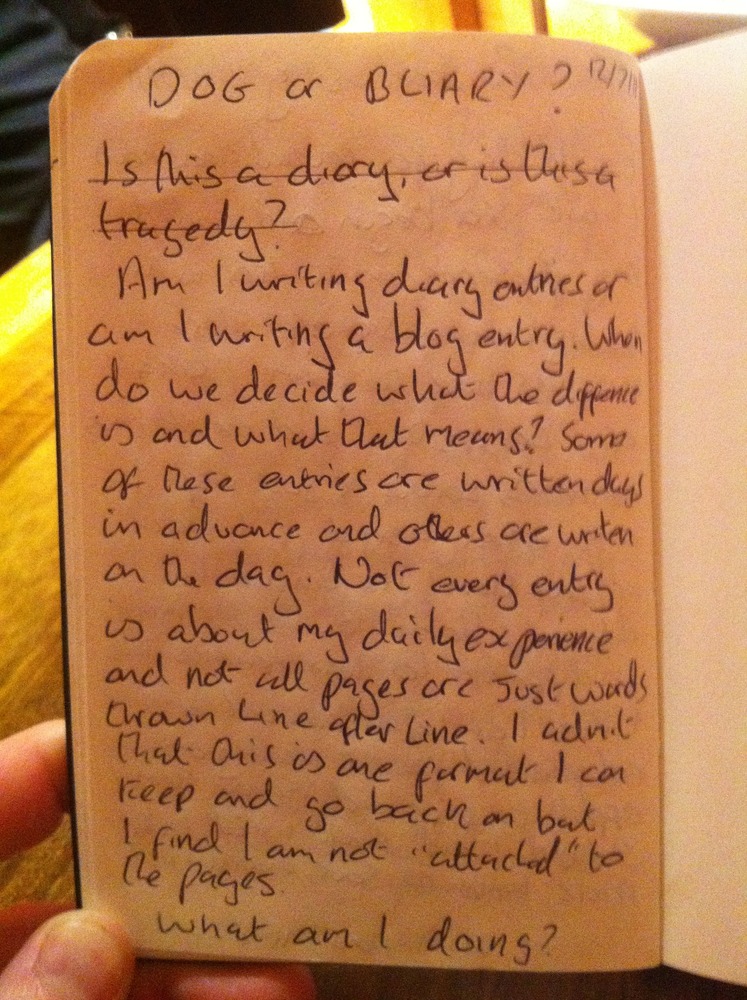 DOG or BLIARY?
Is this a diary, or is this a
tragedy?
Am I writing diary entries or
am I writing a blog entry. When
do we decide what the diffence
is and what that means? Some
of these entries are written days
in advance and others are writen
on the day. Not every entry
is about my daily experience
and not all pages are just words
thrown line after line. I admit
that this is one format I can
keep and go back on but
I find I am not "attached" to
the pages.
What am I doing?